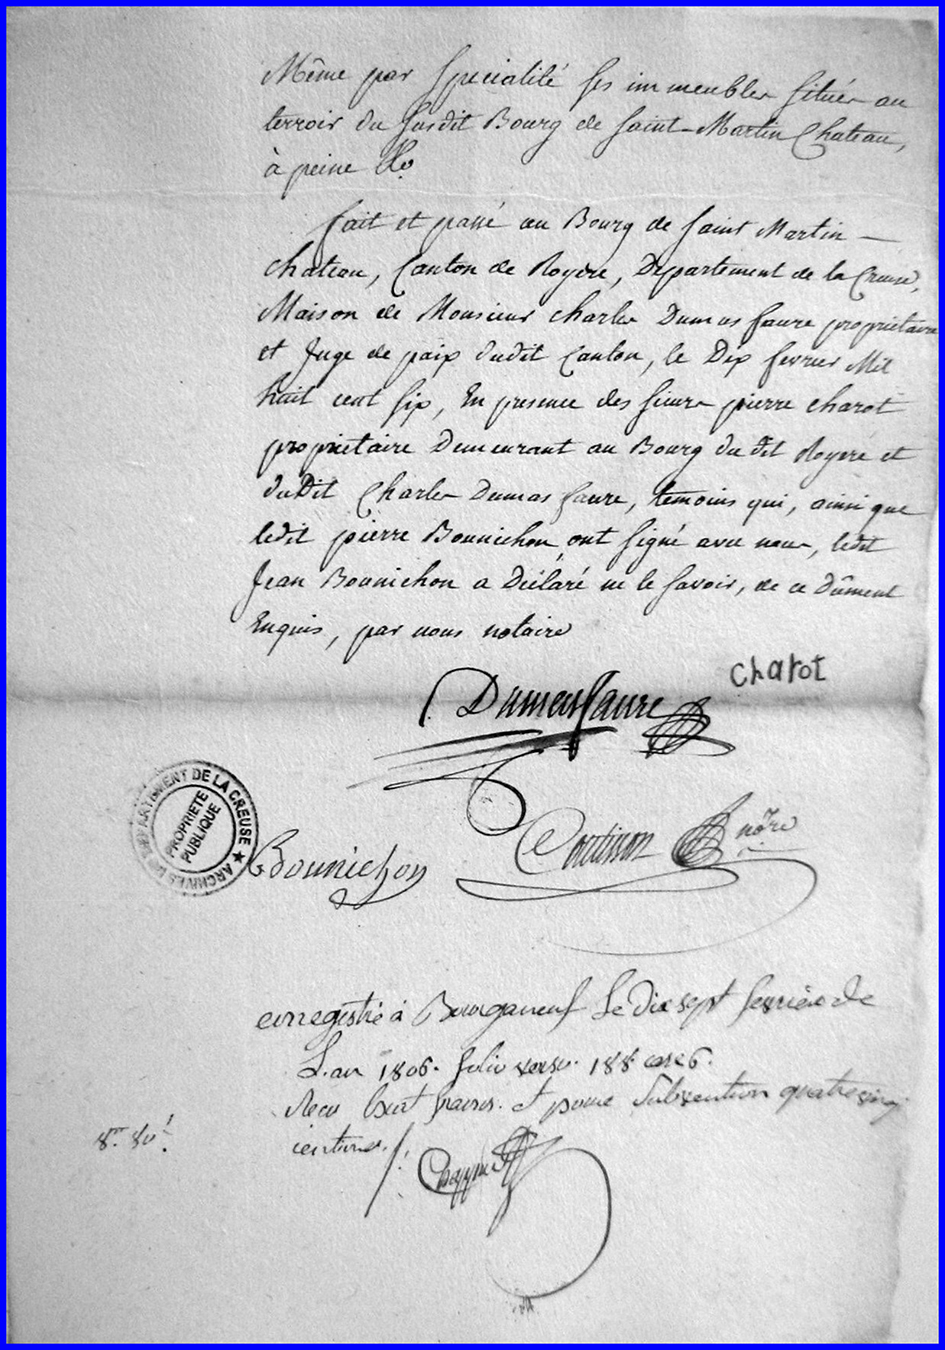 Même par specialité ses immeubles situés au
terroir du susdit Bourg de Saint-Martin Chateau,
à peine &c.
fait et passé au Bourg de Saint Martin -
chateau, Canton de Royere, Département de la Creuse,
Maison de Monsieur charles Dumas faure propriétaire
et Juge de paix dudit Canton, le Dix fevrier Mil
huit cent six, En presence des sieurs pierre charot
propriétaire Demeurant au Bourg du dit Royere et
duDit Charles Dumas faure, temoins qui, ainsi que
ledit pierre Bounichon ont signé avec nous, ledit
Jean Bounichon a Déclaré ne le savoir, de ce Dûment
Enquis, par nous notaire
charot
Dumasfaure
ARCHIVES DU DÉPARTEMENT DE LA CREUSE ★
PROPRIETE
PUBLIQUE
Bounichon
notre
enregistré à Bourganeuf le dix sept fevrier de
L'an 1806. folio verso 188 case 6.
Recu huit francs et pour Subvention quatre vingt
centimes
8. 80